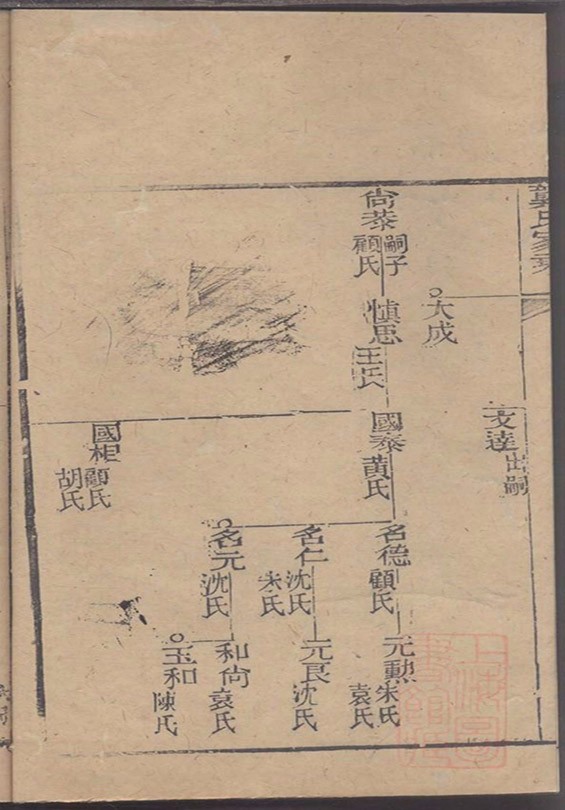 龔氏家乘
大成
文達 出嗣
尙泰 嗣子 顧氏
慎思 王氏
國泰 黄氏
名德 顧氏
元勲 朱氏 袁氏
名仁 沈氏 朱氏
元良 沈氏
名元 沈氏
和尙 袁氏
玉和 陳氏
國相 顧氏 胡氏